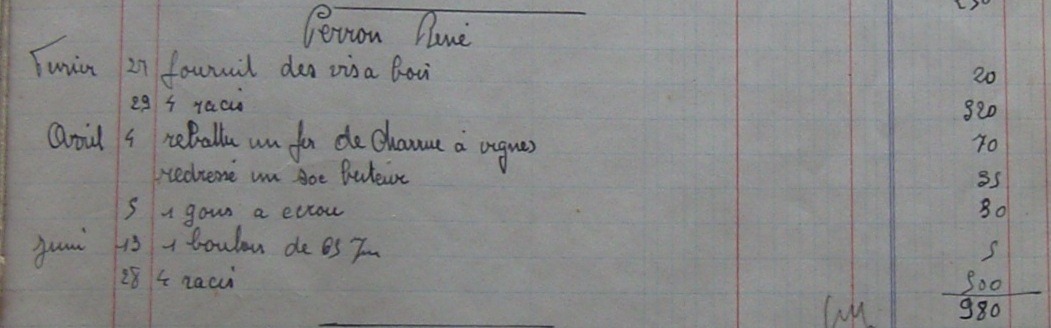 Perron René
Fevrier 27 fournit des vis a bois 20
29 4 racis 320
Avril 4 rebattu un fer de charrue à vignes 70
redressé un soc buteur 35
5 1 gous a ecrou 30
Juin 13 1 boulon de 5
28 4 racis 500
980